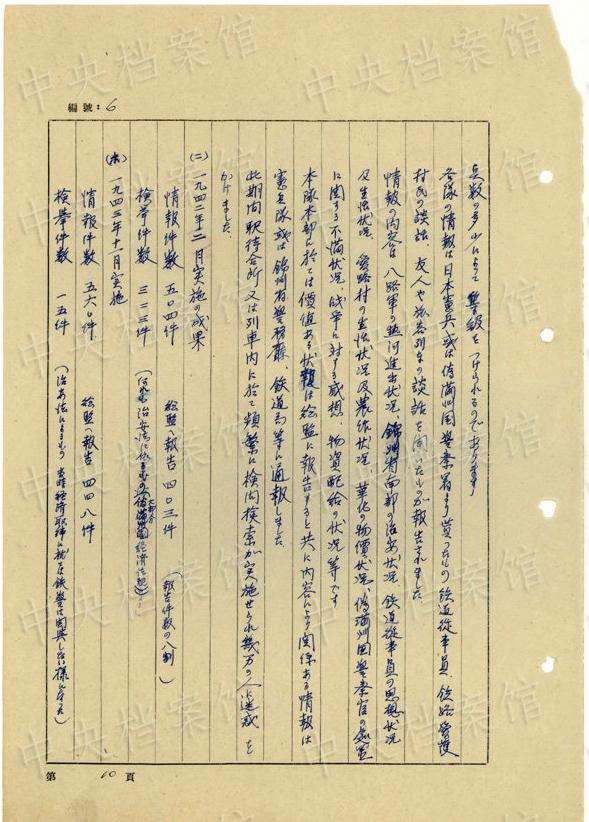 編號：6
兵数の多少によって等級をつけられるのであります
各隊の情報は日本憲兵或は偽満州国警察署より貰ったもの 鉄道従事員、鉄路愛護
村民の談話、友人や旅客列車の談話を聞いたものが報告されました。
情報の内容は八路軍の熱河進出状況、錦州省南部の治安状況 鉄道従事員の思想状況
及生活状況、愛路村の生活状況及農作状況、華北の物價状況、偽満州国警察官の
に関する不満状況、戦争に対する感想、物資配給の状況等です
本隊本部に於ては價値ある状報は総監に報告すると共に内容により関係ある情報は
憲兵隊或は錦州省警務廳、鉄道局等に通報しました。
此期間駅待合所又は列車内に於て頻繁に検問検索が実施せられ幾万の人に迷惑を
かけました。
(二) 一九四二年二月実施の成果
情報件数 五〇四件 総監へ報告 四〇三件 (報告件数の八割)
検挙件数 三二三件 (何れも治安法に依るもの大部分偽満州国経済法規)
(ホ) 一九四三年十一月実施
情報件数 五六〇件 総監へ報告 四四八件
検挙件数 一五件 (治安法によるもの 当時経済取締に就ては鉄警は関与しない様になる)
第 10 頁
中央档案馆